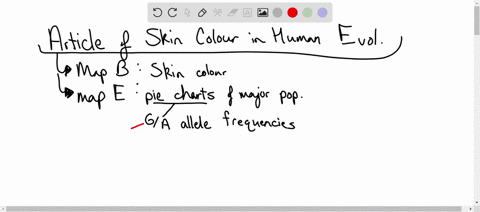 Article of Skin Colour in Human Evol.
Map B : Skin colour
map E : pie charts of major pop.
G/A allele frequencies